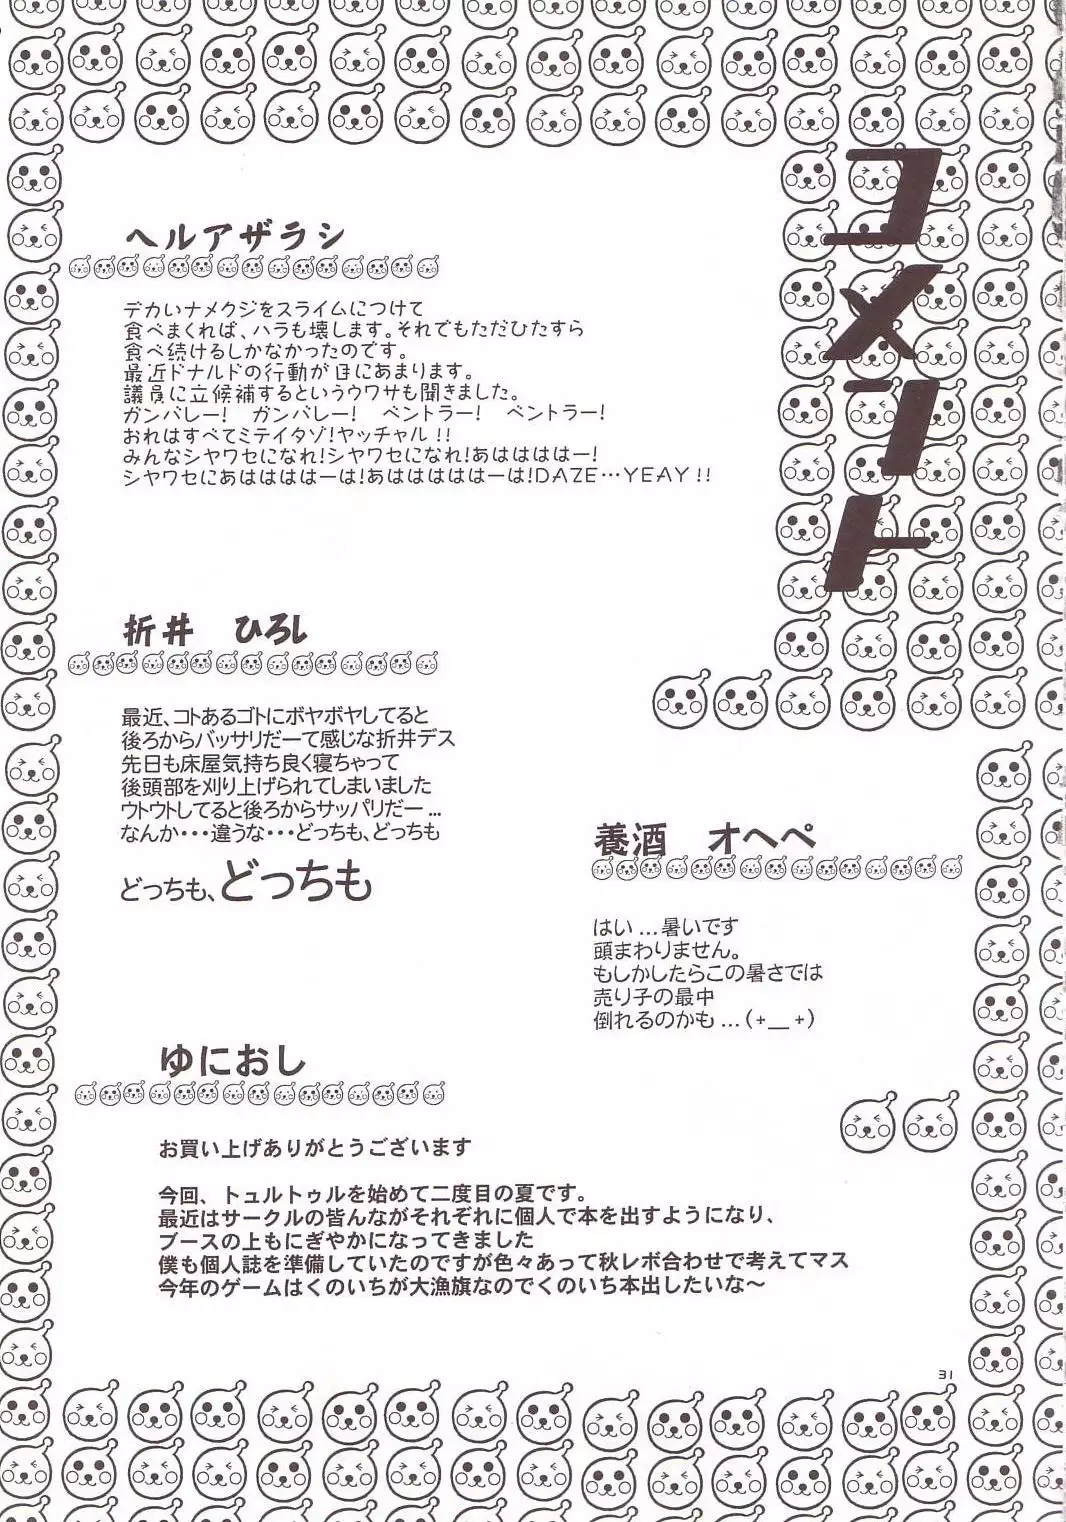 コメント
ヘルアザラシ
デカいナメクジをスライムにつけて
食べまくれば、ハラも壊します。それでもただひたすら
食べ続けるしかなかったのです。
最近ドナルドの行動が目にあまります。
議員に立候補するというウワサも聞きました。
ガンバレー!　ガンバレー!　ベントラー!　ベントラー!
おれはすべてミテイタゾ!ヤッチャル!!
みんなシヤワセになれ!シヤワセになれ!あはははは―!
シヤワセにあはははは―は!あはははははは―は!DAZE…YEAY!!
折井　ひろし
最近、コトあるゴトにボヤボヤしてると
後ろからバッサリだーて感じな折井デス
先日も床屋気持ち良く寝ちゃって
後頭部を刈り上げられてしまいました
ウトウトしてると後ろからサッパリだー…
なんか・・・違うな・・・どっちも、どっちも
どっちも、どっちも
養酒　オヘペ
はい…暑いです
頭まわりません。
もしかしたらこの暑さでは
売り子の最中
倒れるのかも…(+__+)
ゆにおし
お買い上げありがとうございます
今回、トュルトゥルを始めて二度目の夏です。
最近はサークルの皆んながそれぞれに個人で本を出すようになり、
ブースの上もにぎやかになってきました
僕も個人誌を準備していたのですが色々あって秋レボ合わせで考えてマス
今年のゲームはくのいちが大漁旗なのでくのいち本出したいな〜
31